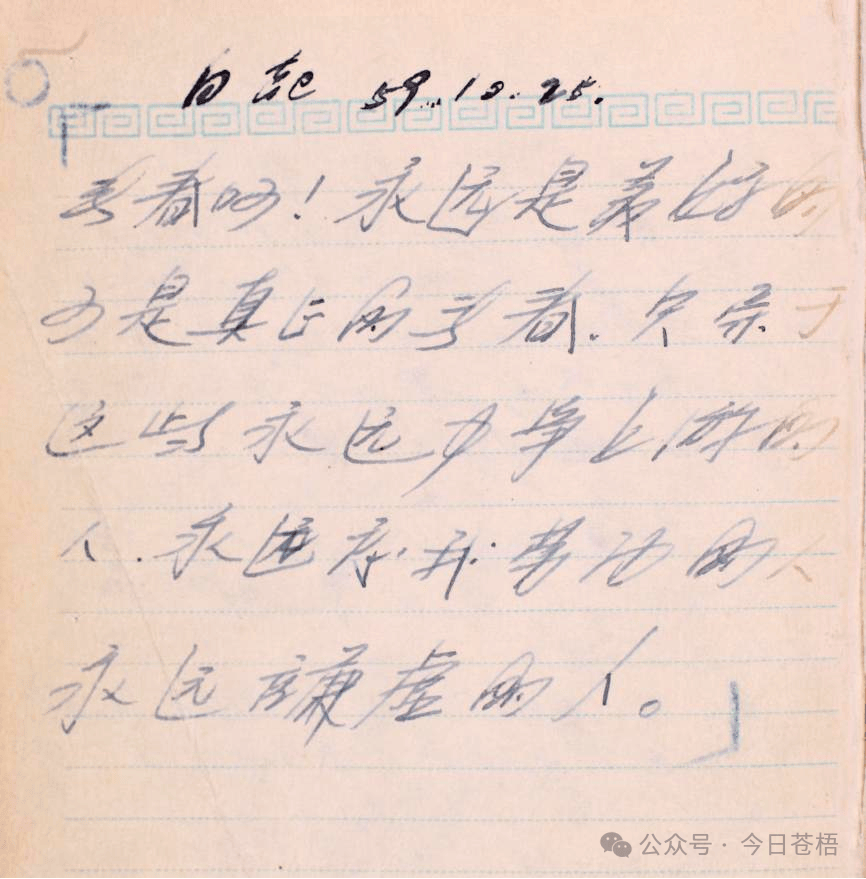 日记 59.10.25.
「青春啊！永远是美好的
可是真正的青春.只属于
这些永远力争上游的
人.永远忘我劳动的人
永远谦虚的人。」
公众号·今日苍梧